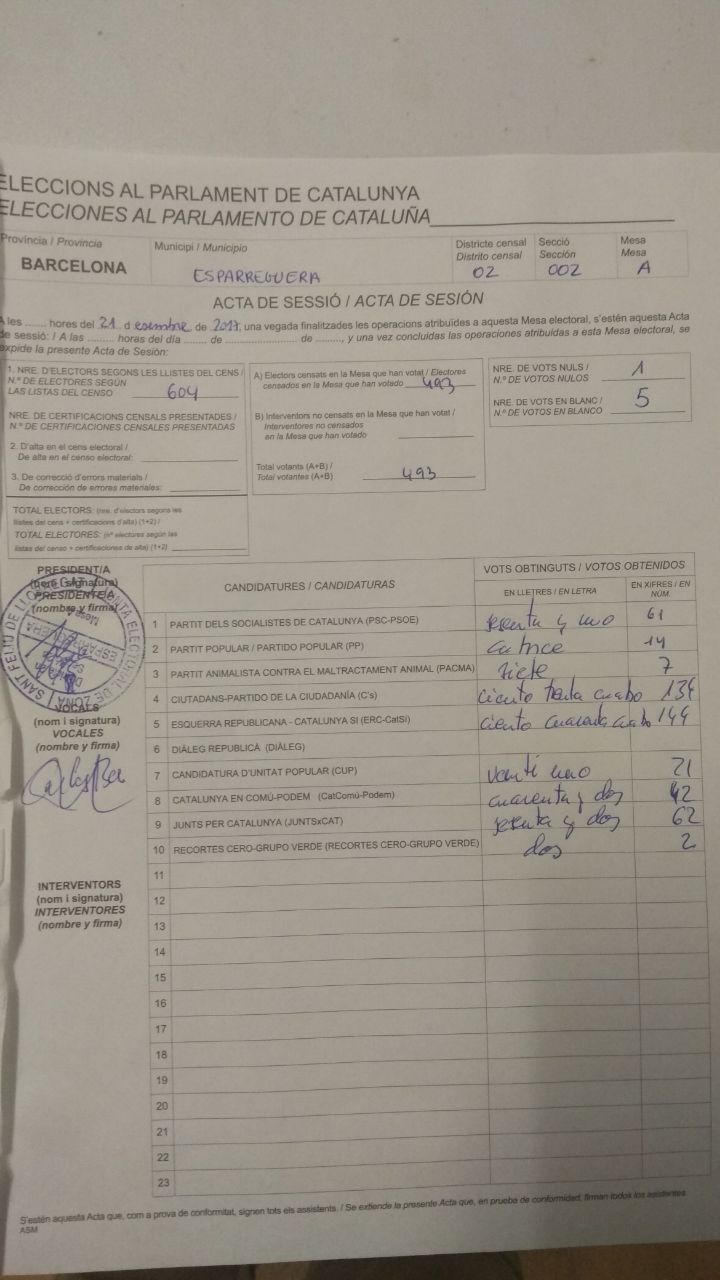 ELECCIONS AL PARLAMENT DE CATALUNYA
ELECCIONES AL PARLAMENTO DE CATALUÑA
Província / Provincia
BARCELONA
Municipi / Municipio
ESPARREGUERA
Districte censal
Distrito censal
02
Secció
Sección
002
Mesa
Mesa
A
ACTA DE SESSIÓ / ACTA DE SESIÓN
A les ....... hores del 21 d esembre de 2017, una vegada finalitzades les operacions atribuïdes a aquesta Mesa electoral, s'estén aquesta Acta
de sessió: / A las ......... horas del día ....... de ............... de ........., y una vez concluidas las operaciones atribuidas a esta Mesa electoral, se
expide la presente Acta de Sesión:
1. NRE. D'ELECTORS SEGONS LES LLISTES DEL CENS /
N.º DE ELECTORES SEGÚN
LAS LISTAS DEL CENSO 604
NRE. DE CERTIFICACIONS CENSALS PRESENTADES /
N.º DE CERTIFICACIONES CENSALES PRESENTADAS
2. D'alta en el cens electoral /
De alta en el censo electoral:
3. De correcció d'errors materials /
De corrección de errores materiales:
TOTAL ELECTORS: (nre. d'electors segons les
llistes del cens + certificacions d'alta) (1+2) /
TOTAL ELECTORES: (nº electores según las
listas del censo + certificaciones de alta) (1+2)
A) Electors censats en la Mesa que han votat / Electores
censados en la Mesa que han votado 493
B) Interventors no censats en la Mesa que han votat /
Interventores no censados
en la Mesa que han votado
Total votants (A+B) /
Total votantes (A+B) 493
NRE. DE VOTS NULS /
N.º DE VOTOS NULOS 1
NRE. DE VOTS EN BLANC /
N.º DE VOTOS EN BLANCO 5
PRESIDENT/A
(nom i signatura)
PRESIDENTE/A
(nombre y firma)
SANT FELIU DE
JUNTA ELECTORAL DE ZONA
ESPARREGUERA
Mesa
VOCALS
(nom i signatura)
VOCALES
(nombre y firma)
INTERVENTORS
(nom i signatura)
INTERVENTORES
(nombre y firma)
CANDIDATURES / CANDIDATURAS
VOTS OBTINGUTS / VOTOS OBTENIDOS
EN LLETRES / EN LETRA
EN XIFRES / EN NÚM.
1 PARTIT DELS SOCIALISTES DE CATALUNYA (PSC-PSOE) sesenta y uno 61
2 PARTIT POPULAR / PARTIDO POPULAR (PP) catorce 14
3 PARTIT ANIMALISTA CONTRA EL MALTRACTAMENT ANIMAL (PACMA) siete 7
4 CIUTADANS-PARTIDO DE LA CIUDADANÍA (C's) ciento treinta cuatro 134
5 ESQUERRA REPUBLICANA - CATALUNYA SÍ (ERC-CatSí) ciento cuarenta cuatro 144
6 DIÀLEG REPUBLICÀ (DIÀLEG)
7 CANDIDATURA D'UNITAT POPULAR (CUP) venti uno 21
8 CATALUNYA EN COMÚ-PODEM (CatComú-Podem) cuarenta y dos 42
9 JUNTS PER CATALUNYA (JUNTSxCAT) sesenta y dos 62
10 RECORTES CERO-GRUPO VERDE (RECORTES CERO-GRUPO VERDE) dos 2
11
12
13
14
15
16
17
18
19
20
21
22
23
S'estén aquesta Acta que, com a prova de conformitat, signen tots els assistents. / Se extiende la presente Acta que, en prueba de conformidad, firman todos los asistentes
ASM